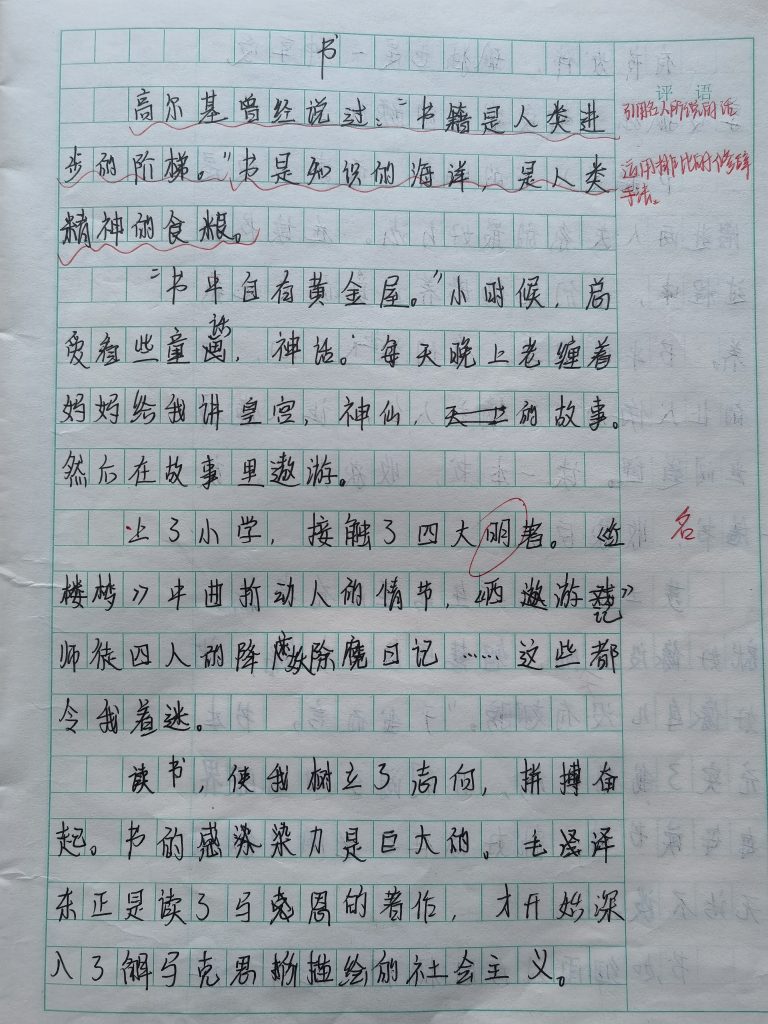 书
评语
高尔基曾经说过："书籍是人类进
引用名人所说的话
步的阶梯。"书是知识的海洋，是人类
运用排比的修辞
手法。
精神的食粮。
"书中自有黄金屋。"小时候，总
爱看些童话，神话。每天晚上老缠着
妈妈给我讲皇宫，神仙，的故事。
然后在故事里遨游。
上了小学，接触了四大明著。《红
名
楼梦》中曲折动人的情节，《西游记》
师徒四人的降妖除魔日记……这些都
令我着迷。
读书，使我树立了志向，拼搏奋
起。书的感染力是巨大的。毛泽
东正是读了马克思的著作，才开始深
入了解马克思描绘的社会主义。